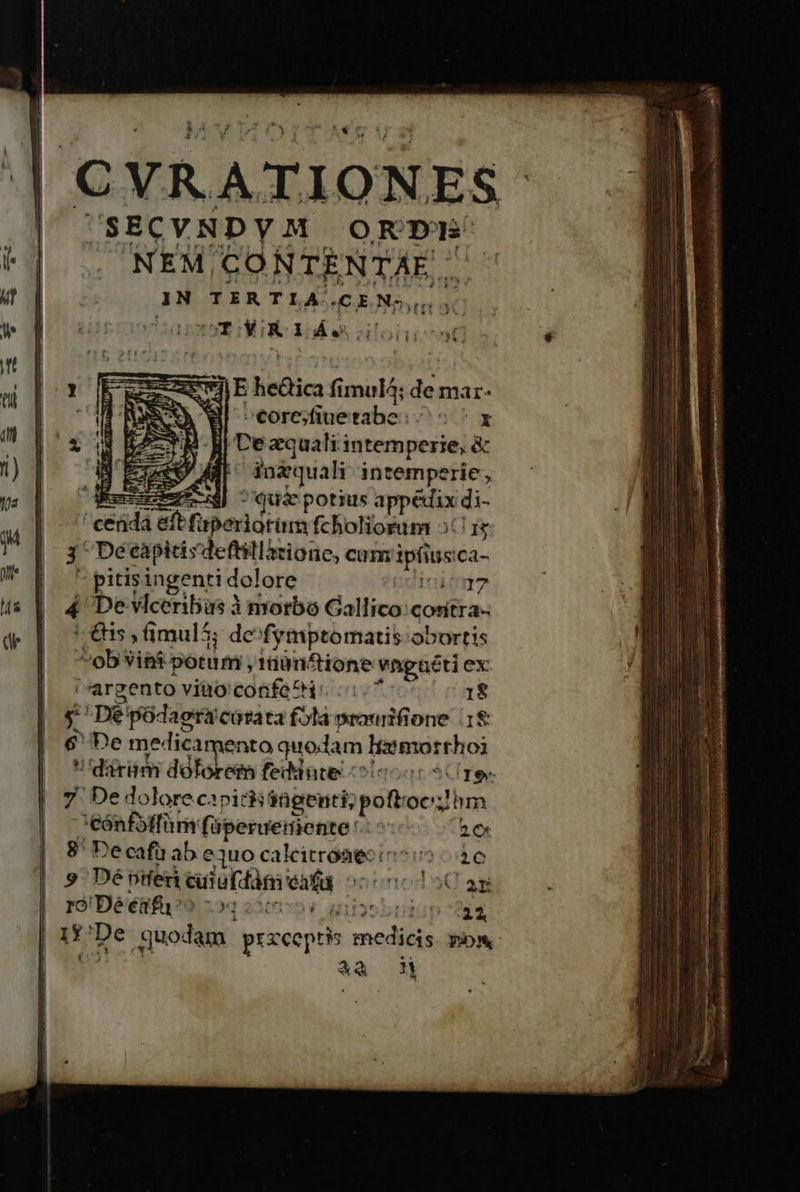 CVRATIONES
SECVNDVM ORDI-
NEM CONTENTAE
IN TERTIA CEN-
TVRIA.
1 DE hectica ſimulq́; de mar-
core, ſiue tabe 1
2 De æquali intemperie, &
inæquali intemperie,
quæ potius appẽdix di-
cenda eſt ſuperiorum ſcholiorum 15
3 De capitis deſtillatione, cum ipſius ca-
pitis ingenti dolore 17
4 De vlceribus à morbo Gallico contra-
ctis, ſimulq́; de ſymptomatis obortis
ob vini potum, iũunctione vnguẽti ex
argento viuo confecti 18
5 De podagra curata ſola prouiſione 18
6 De medicamento quodam hæmorrhoi
darum dolorem ſedante 19
7 De dolore capitis ingenti, poſt ocul
conſoſſum ſuperueniente 20
8 De caſu ab equo calcitrone 20
9 De pueri cuiuſdam caſu 21
10 De caſu 22
11 De quodam præceptis medicis non
aa ij